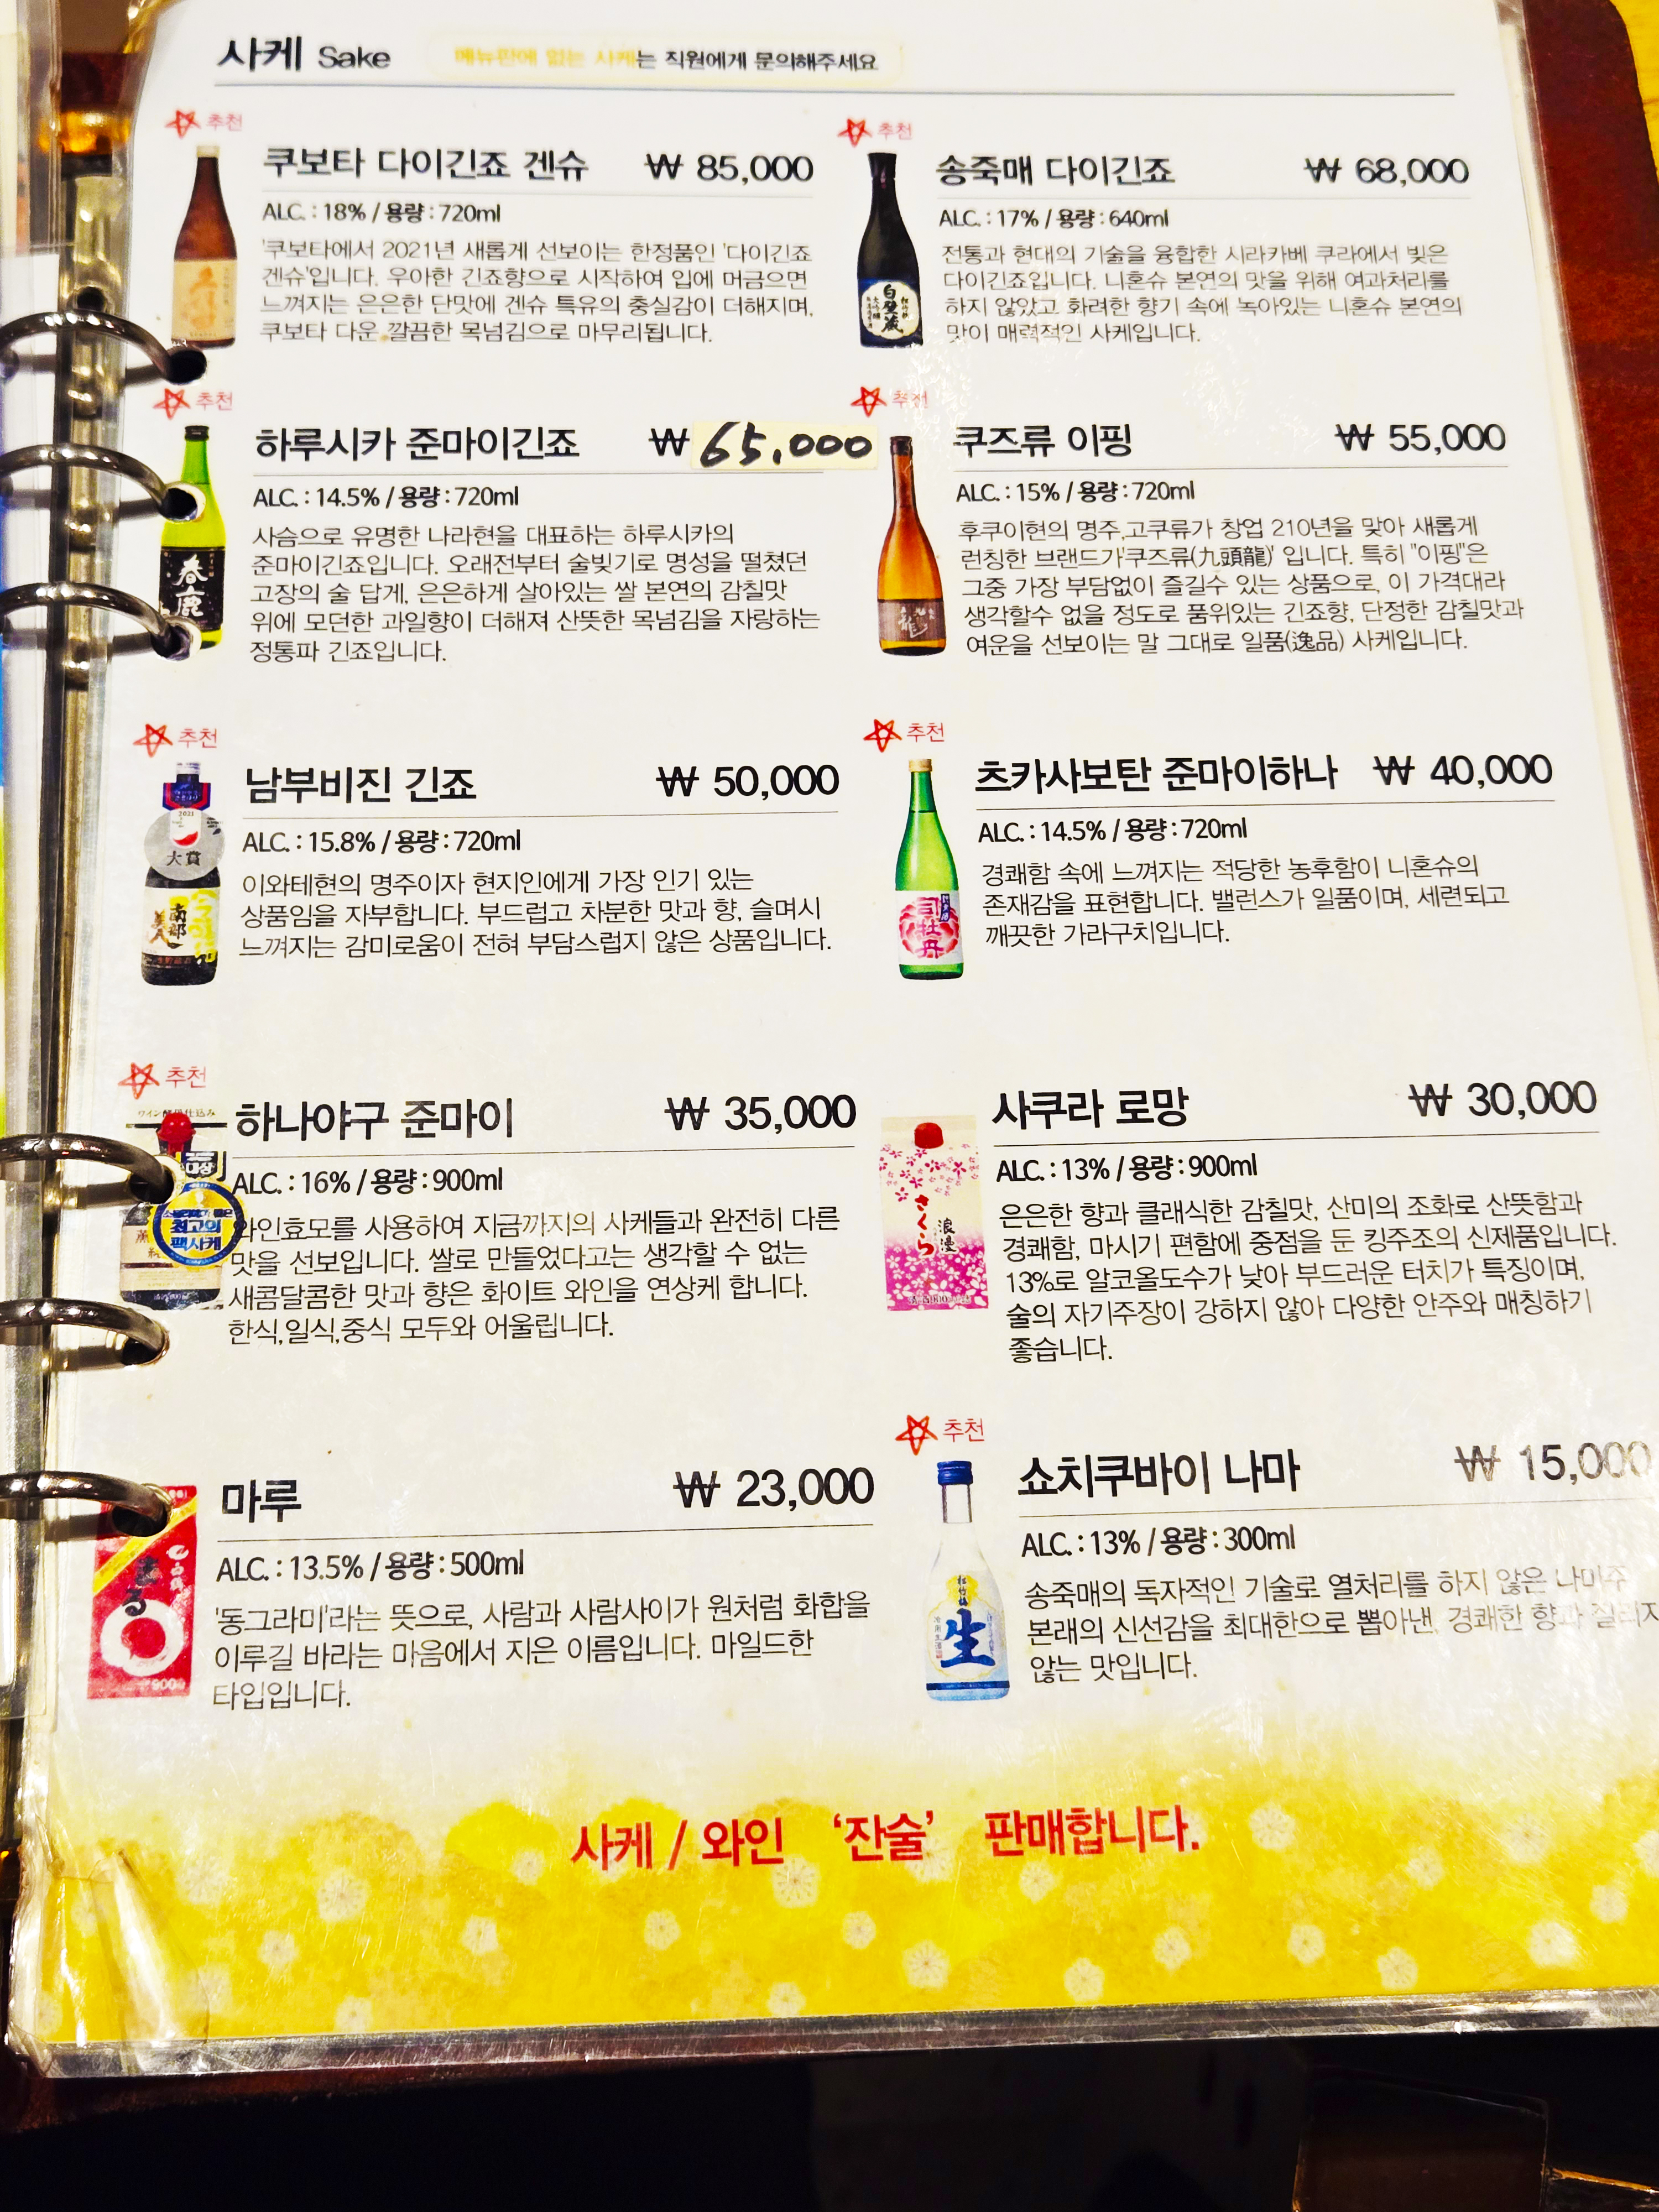 사케 Sake
메뉴판에 없는 사케는 직원에게 문의해주세요
추천
쿠보타 다이긴죠 겐슈 ₩ 85,000
ALC. : 18% / 용량 : 720ml
'쿠보타에서 2021년 새롭게 선보이는 한정품인 '다이긴죠
겐슈'입니다. 우아한 긴죠향으로 시작하여 입에 머금으면
느껴지는 은은한 단맛에 겐슈 특유의 충실감이 더해지며,
쿠보타 다운 깔끔한 목넘김으로 마무리됩니다.
추천
송죽매 다이긴죠 ₩ 68,000
ALC. : 17% / 용량 : 640ml
전통과 현대의 기술을 융합한 시라카베 쿠라에서 빚은
다이긴죠입니다. 니혼슈 본연의 맛을 위해 여과처리를
하지 않았고 화려한 향기 속에 녹아있는 니혼슈 본연의
맛이 매력적인 사케입니다.
白壁蔵
추천
하루시카 준마이긴죠 ₩ 65,000
ALC. : 14.5% / 용량 : 720ml
사슴으로 유명한 나라현을 대표하는 하루시카의
준마이긴죠입니다. 오래전부터 술빚기로 명성을 떨쳤던
고장의 술 답게, 은은하게 살아있는 쌀 본연의 감칠맛
위에 모던한 과일향이 더해져 산뜻한 목넘김을 자랑하는
정통파 긴죠입니다.
春鹿
추천
쿠즈류 이핑 ₩ 55,000
ALC. : 15% / 용량 : 720ml
후쿠이현의 명주,고쿠류가 창업 210년을 맞아 새롭게
런칭한 브랜드가'쿠즈류(九頭龍)' 입니다. 특히 "이핑"은
그중 가장 부담없이 즐길수 있는 상품으로, 이 가격대라
생각할수 없을 정도로 품위있는 긴죠향, 단정한 감칠맛과
여운을 선보이는 말 그대로 일품(逸品) 사케입니다.
추천
남부비진 긴죠 ₩ 50,000
ALC. : 15.8% / 용량 : 720ml
이와테현의 명주이자 현지인에게 가장 인기 있는
상품임을 자부합니다. 부드럽고 차분한 맛과 향, 슬며시
느껴지는 감미로움이 전혀 부담스럽지 않은 상품입니다.
2021
大賞
南部美人
추천
츠카사보탄 준마이하나 ₩ 40,000
ALC. : 14.5% / 용량 : 720ml
경쾌함 속에 느껴지는 적당한 농후함이 니혼슈의
존재감을 표현합니다. 밸런스가 일품이며, 세련되고
깨끗한 가라구치입니다.
司牡丹
추천
하나야구 준마이 ₩ 35,000
ALC. : 16% / 용량 : 900ml
와인효모를 사용하여 지금까지의 사케들과 완전히 다른
맛을 선보입니다. 쌀로 만들었다고는 생각할 수 없는
새콤달콤한 맛과 향은 화이트 와인을 연상케 합니다.
한식,일식,중식 모두와 어울립니다.
대상
최고의
팩사케
사쿠라 로망 ₩ 30,000
ALC. : 13% / 용량 : 900ml
은은한 향과 클래식한 감칠맛, 산미의 조화로 산뜻함과
경쾌함, 마시기 편함에 중점을 둔 킹주조의 신제품입니다.
13%로 알코올도수가 낮아 부드러운 터치가 특징이며,
술의 자기주장이 강하지 않아 다양한 안주와 매칭하기
좋습니다.
さくら
浪漫
마루 ₩ 23,000
ALC. : 13.5% / 용량 : 500ml
'동그라미'라는 뜻으로, 사람과 사람사이가 원처럼 화합을
이루길 바라는 마음에서 지은 이름입니다. 마일드한
타입입니다.
まる
추천
쇼치쿠바이 나마 ₩ 15,000
ALC. : 13% / 용량 : 300ml
송죽매의 독자적인 기술로 열처리를 하지 않은 나마주
본래의 신선감을 최대한으로 뽑아낸, 경쾌한 향과 질리지
않는 맛입니다.
松竹梅
生
사케 / 와인 '잔술' 판매합니다.